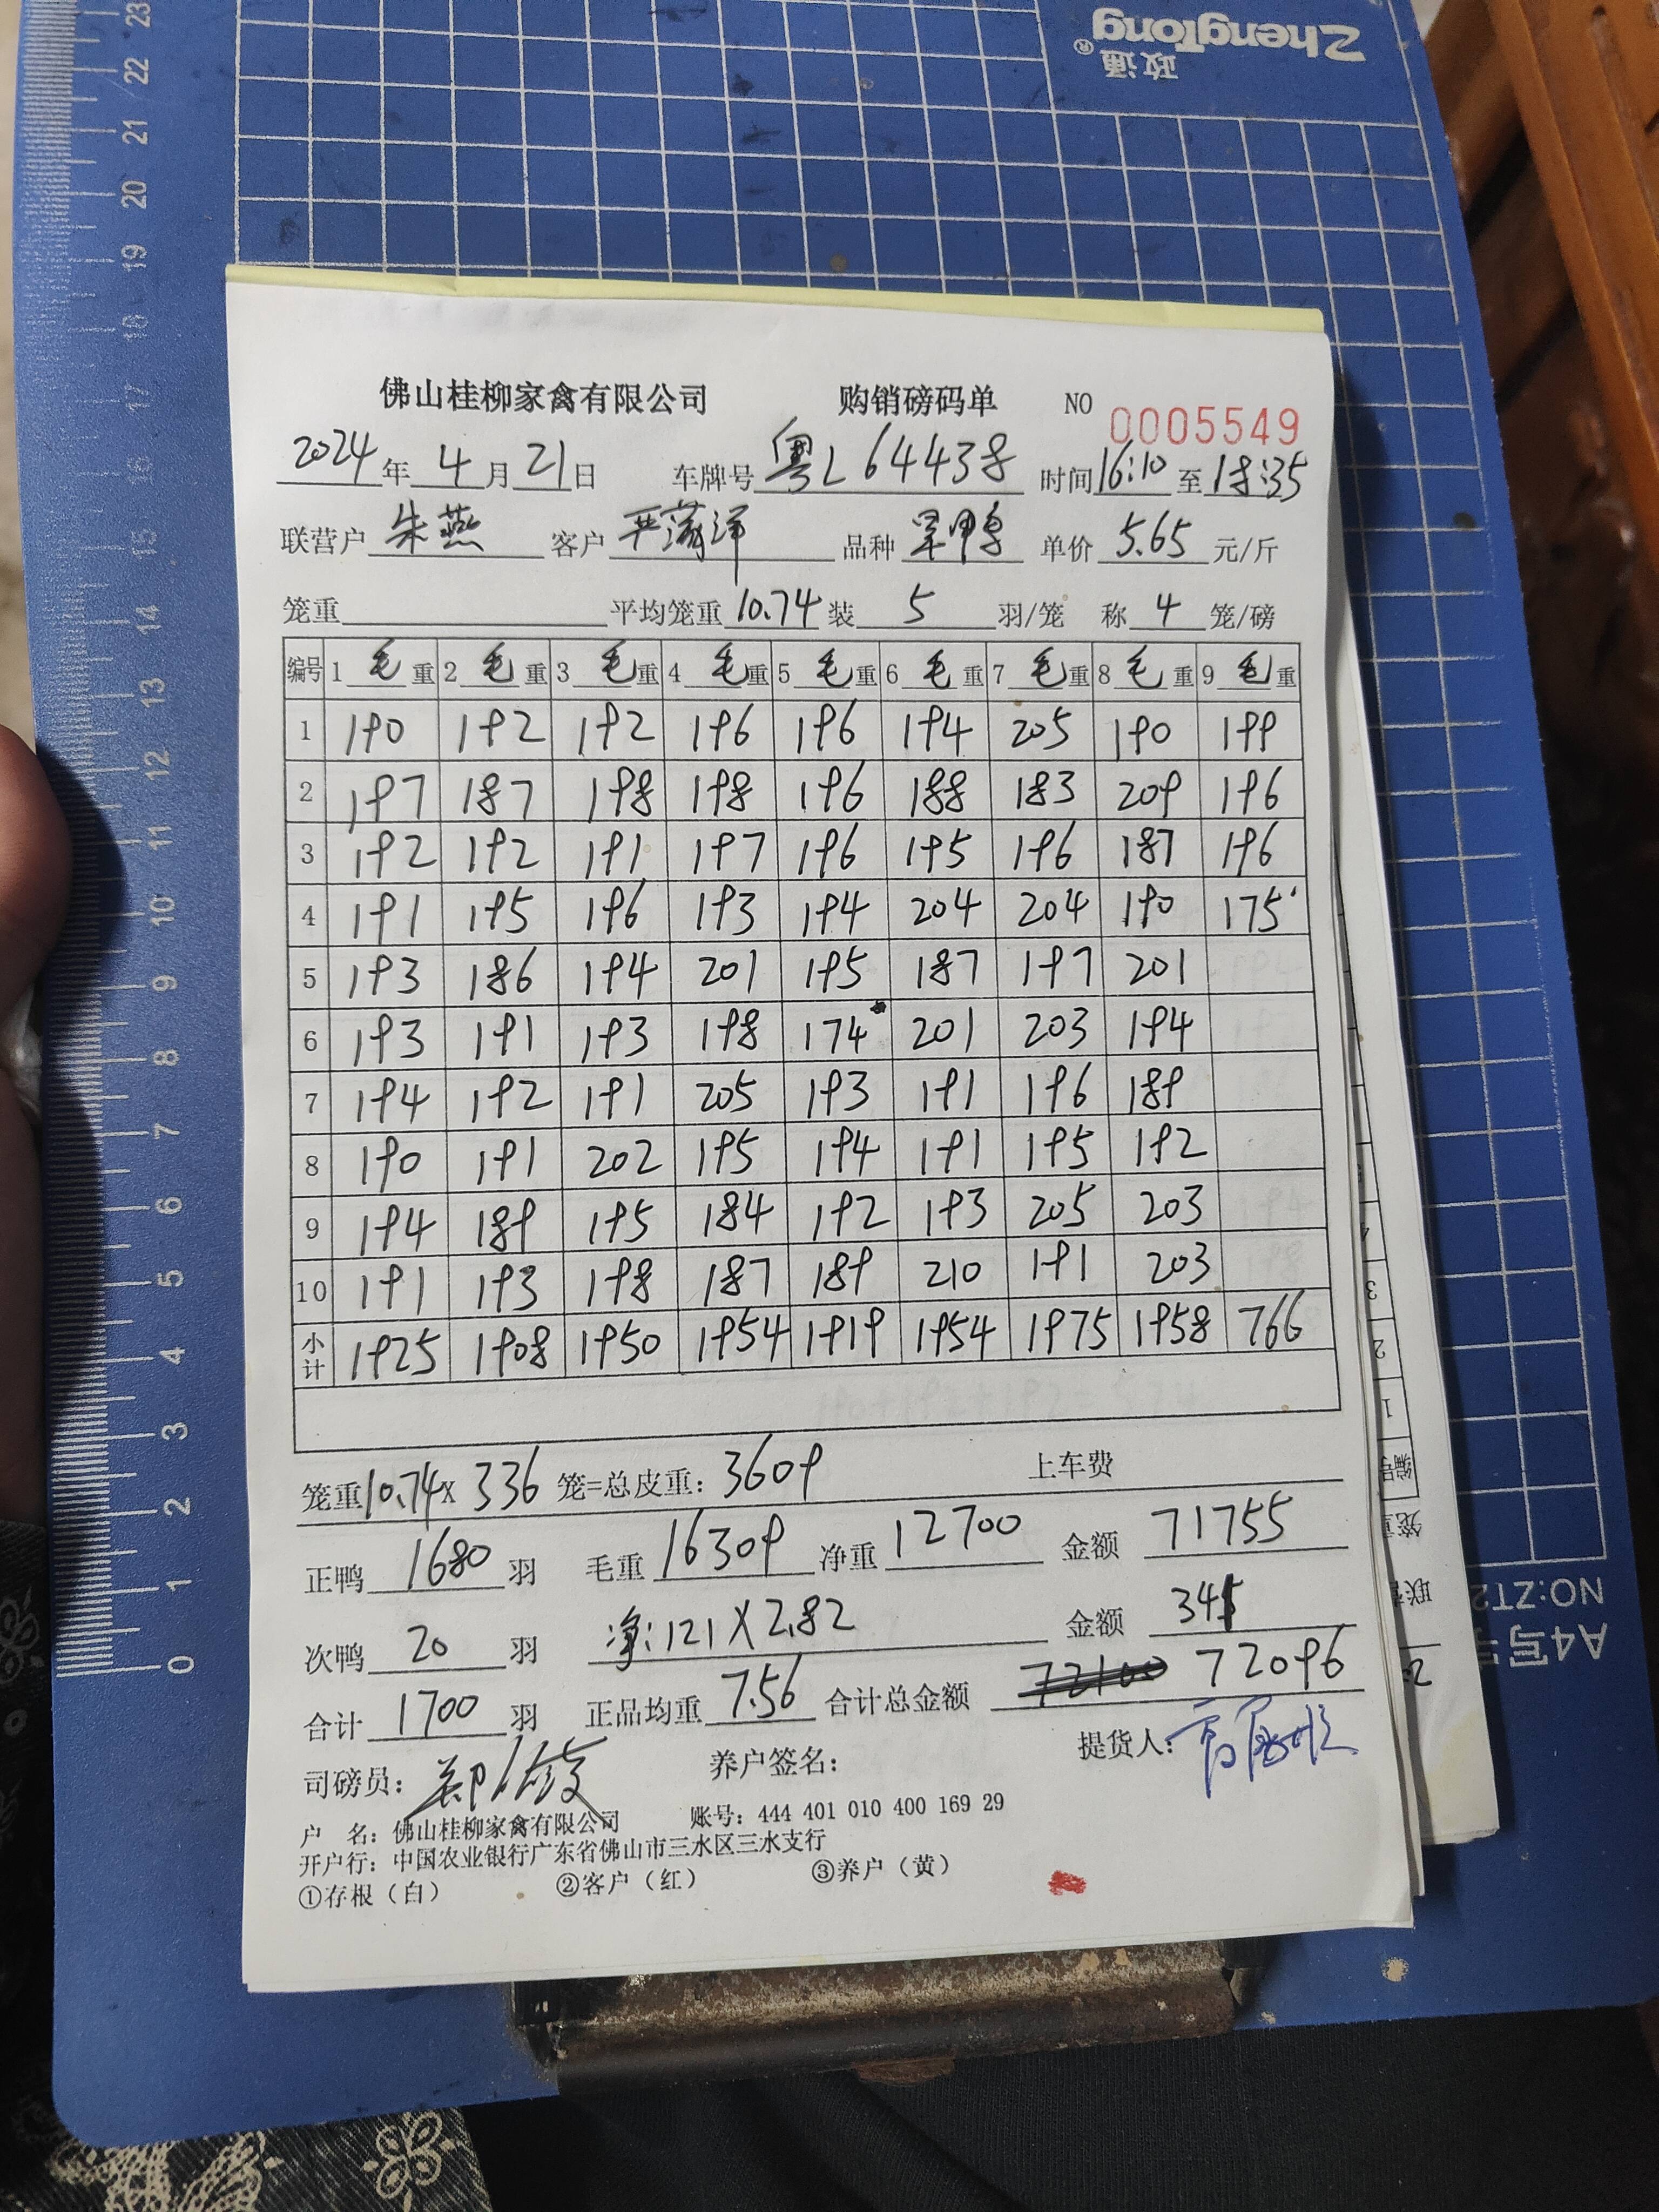 ZhengTong®
政通
佛山桂柳家禽有限公司 购销磅码单 NO 0005549
2024年4月21日 车牌号 粤L64438 时间16:10至18:35
联营户 朱燕 客户 品种 单价 5.65 元/斤
笼重 平均笼重10.74装 5 羽/笼 称 4 笼/磅
编号 1 毛重 2 毛重 3 毛重 4 毛重 5 毛重 6 毛重 7 毛重 8 毛重 9 毛重
1 190 192 192 196 196 194 205 190 199
2 197 187 198 198 196 188 183 209 196
3 192 192 191 197 196 195 196 187 196
4 191 195 196 193 194 204 204 190 175
5 193 186 194 201 195 187 197 201
6 193 191 193 198 174 201 203 194
7 194 192 191 205 193 191 196 189
8 190 191 202 195 194 191 195 192
9 194 189 195 184 192 193 205 203
10 191 193 198 187 189 210 191 203
小计 1925 1908 1950 1954 1919 1954 1975 1958 766
笼重10.74x 336 笼=总皮重: 3609 上车费
正鸭 1680 羽 毛重 16309 净重 12700 金额 71755
次鸭 20 羽 净:121X2.82 金额 341
合计 1700 羽 正品均重 7.56 合计总金额 72100 72096
司磅员: 养户签名: 提货人:
户 名: 佛山桂柳家禽有限公司 账号: 444 401 010 400 169 29
开户行: 中国农业银行广东省佛山市三水区三水支行
①存根(白) ②客户(红) ③养户(黄)
23
22
21
20
19
18
17
16
15
14
13
12
11
10
9
8
7
6
5
4
3
2
1
0
3
2
1
编号
笼重
联
NO:ZT2
A4写字